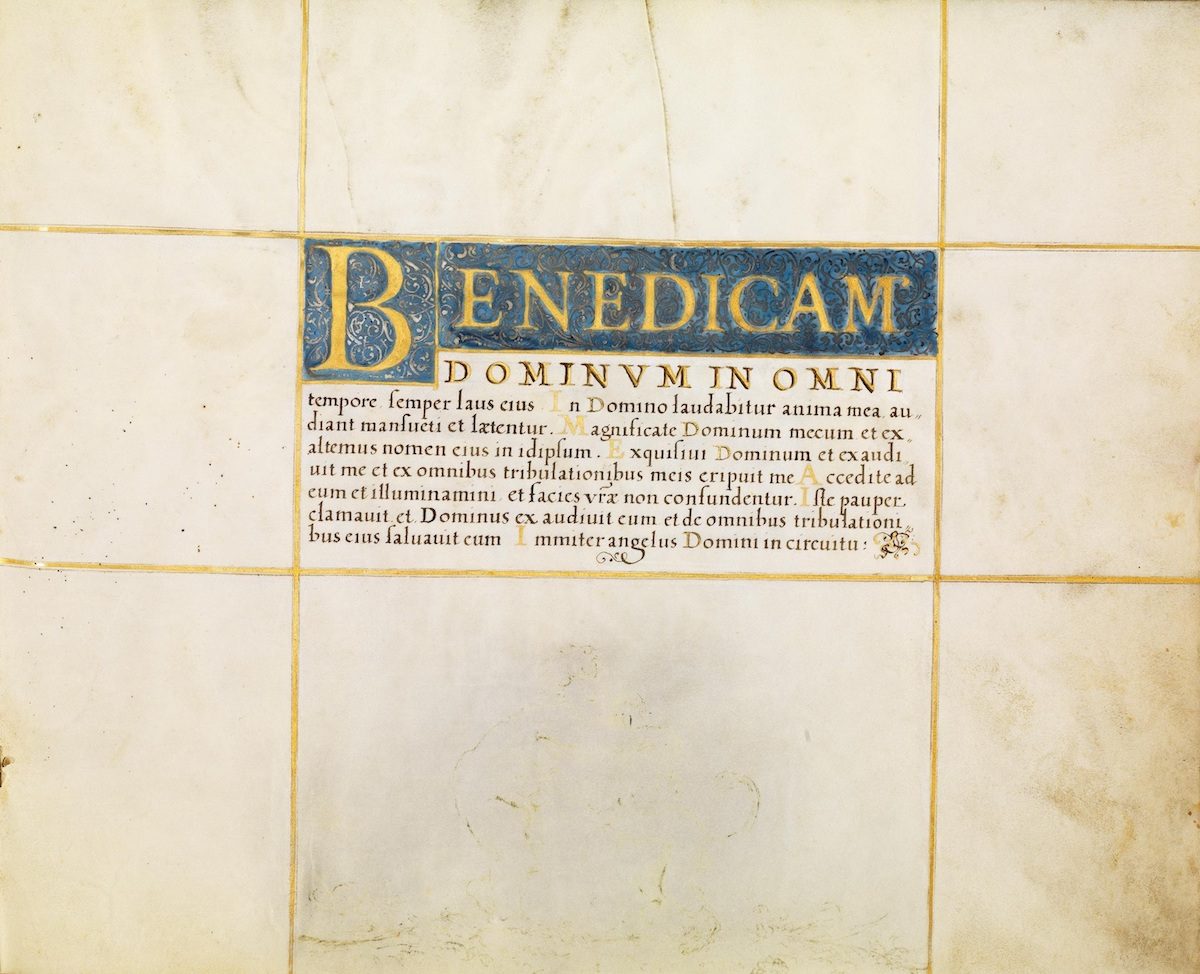 BENEDICAM
DOMINVM IN OMNI
tempore ſemper laus eius In Domino laudabitur anima mea, au„
diant manſueti et lætentur. Magnificate Dominum mecum et ex„
altemus nomen eius in idipſum. Exquiſiui Dominum et exaudi„
uit me et ex omnibus tribulationibus meis eripuit me Accedite ad
eum et illuminamini et facies vr̃æ non confundentur. Iſte pauper
clamauit et Dominus exaudiuit eum et de omnibus tribulationi„
bus eius ſaluauit eum Immiter angelus Domini in circuitu: